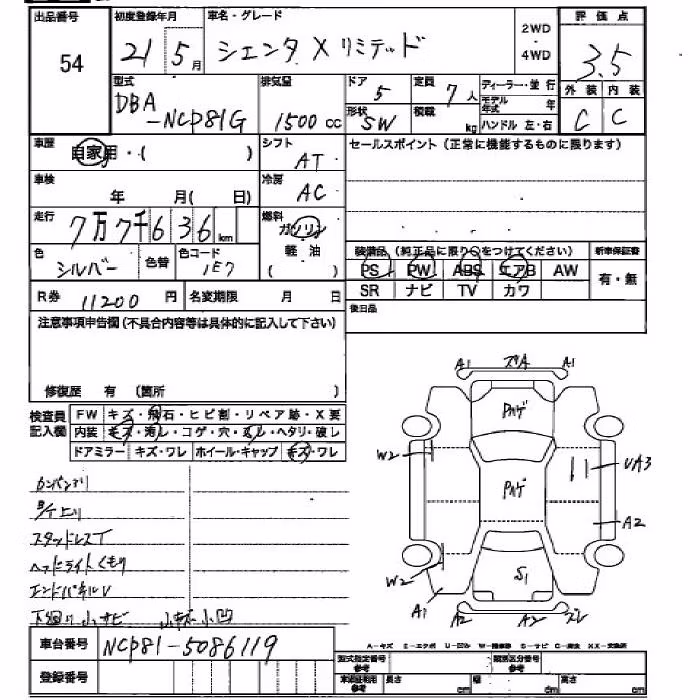 出品番号 54
初度登録年月 21 5月
車名・グレード シエンタ X リミテッド
2WD・4WD
評価点 3.5
外装 C 内装 C
型式 DBA-NCP81G
排気量 1500 cc
ドア 5
形状 SW
定員 7人
積載 kg
ディーラー・並行
モデル年式 年
ハンドル 左・右
車歴 自家用・( )
シフト AT
セールスポイント(正常に機能するものに限ります)
車検 年 月( 日)
冷房 AC
走行 7万7千636 km
燃料 ガソリン 軽油 ( )
色 シルバー 色替
色コード 1E7
装備品(純正品に限り○をつけてください)
新車保証書 有・無
PS PW ABS エアB AW
SR ナビ TV カワ
R券 11200 円
名変期限 月 日
後日品
注意事項申告欄(不具合内容等は具体的に記入して下さい)
修復歴 有 (箇所 )
検査員記入欄
FW キズ・飛石・ヒビ割・リペア跡・X要
内装 キズ・汚レ・コゲ・穴・ ・ヘタリ・破レ
ドアミラー キズ・ワレ ホイール・キャップ キズ・ワレ
スタッドレスT
ヘッドライトくもり
エンドパネルV
下廻り小サビ 小キズ小凹
A1 ズA A1
Pハゲ
W2
Pハゲ
UA3
A2
W2
S1
A1 A2 A2 ズレ
車台番号 NCP81-5086119
登録番号
A－キズ E－エクボ U－凹み W－補修車 S－サビ C－腐食 XX－交換済
型式指定番号 参考
類別区分番号 参考
車検証利用 参考
長さ cm 幅 cm 高さ cm